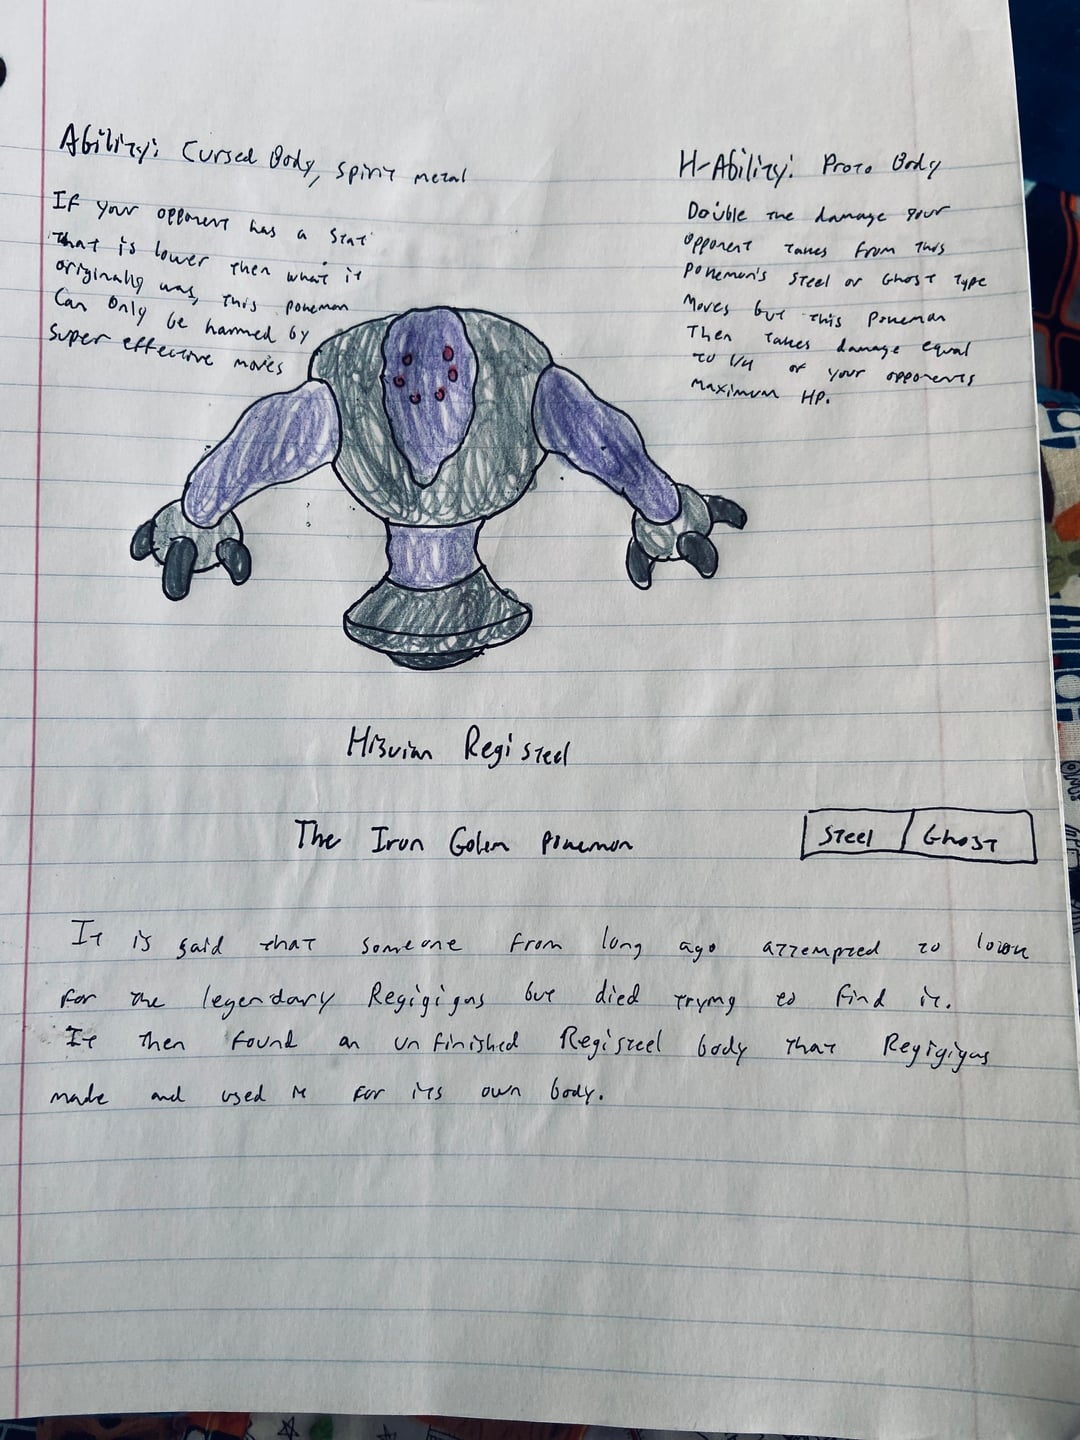 Ability: Cursed Body, Spirit metal
If your opponent has a stat
that is lower then what it
originally was, this pokemon
can only be harmed by
super effective moves
H-Ability: Proto Body
Double the damage your
opponent takes from this
Pokemon's Steel or Ghost type
moves but this Pokemon
Then takes damage equal
to 1/4 of your opponents
maximum HP.
Hisuian Registeel
The Iron Golem Pokemon
Steel Ghost
It is said that someone from long ago attempted to look
for the legendary Regigigas but died trying to find it.
It then found an unfinished Registeel body that Regigigas
made and used it for its own body.